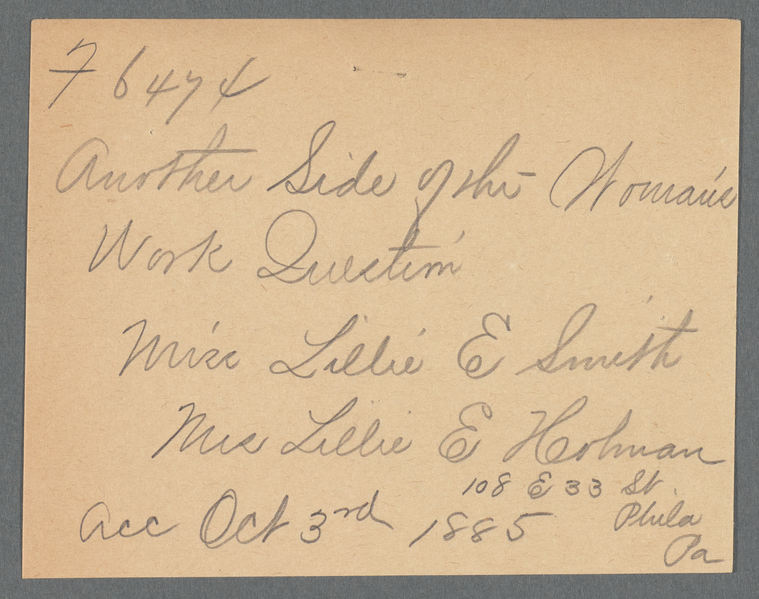 F 6474
Another Side of the Woman's
Work Question
Miss Lillie E Smith
Mrs Lillie E Holman
108 E 33 St.
Phila
Pa
acc Oct 3rd 1885